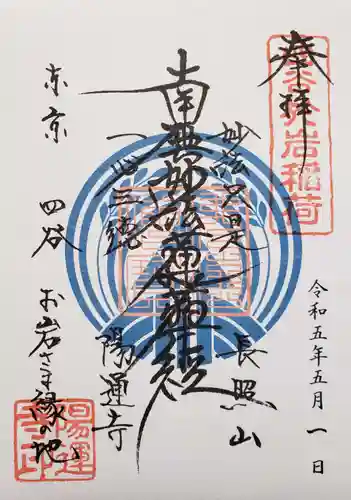 奉拝
於岩稲荷
令和五年五月一日
妙法只是
長照山
南無妙法蓮華経
一心三徳
陽運寺
東京 四谷
お岩さま縁の地
陽運寺印